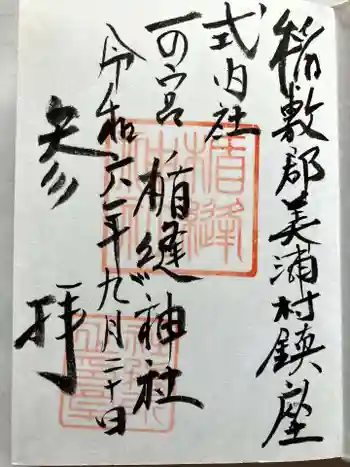 稲敷郡美浦村鎮座
式内社
一の宮 楯縫神社
令和六年九月二十日
参拝
楯縫神社